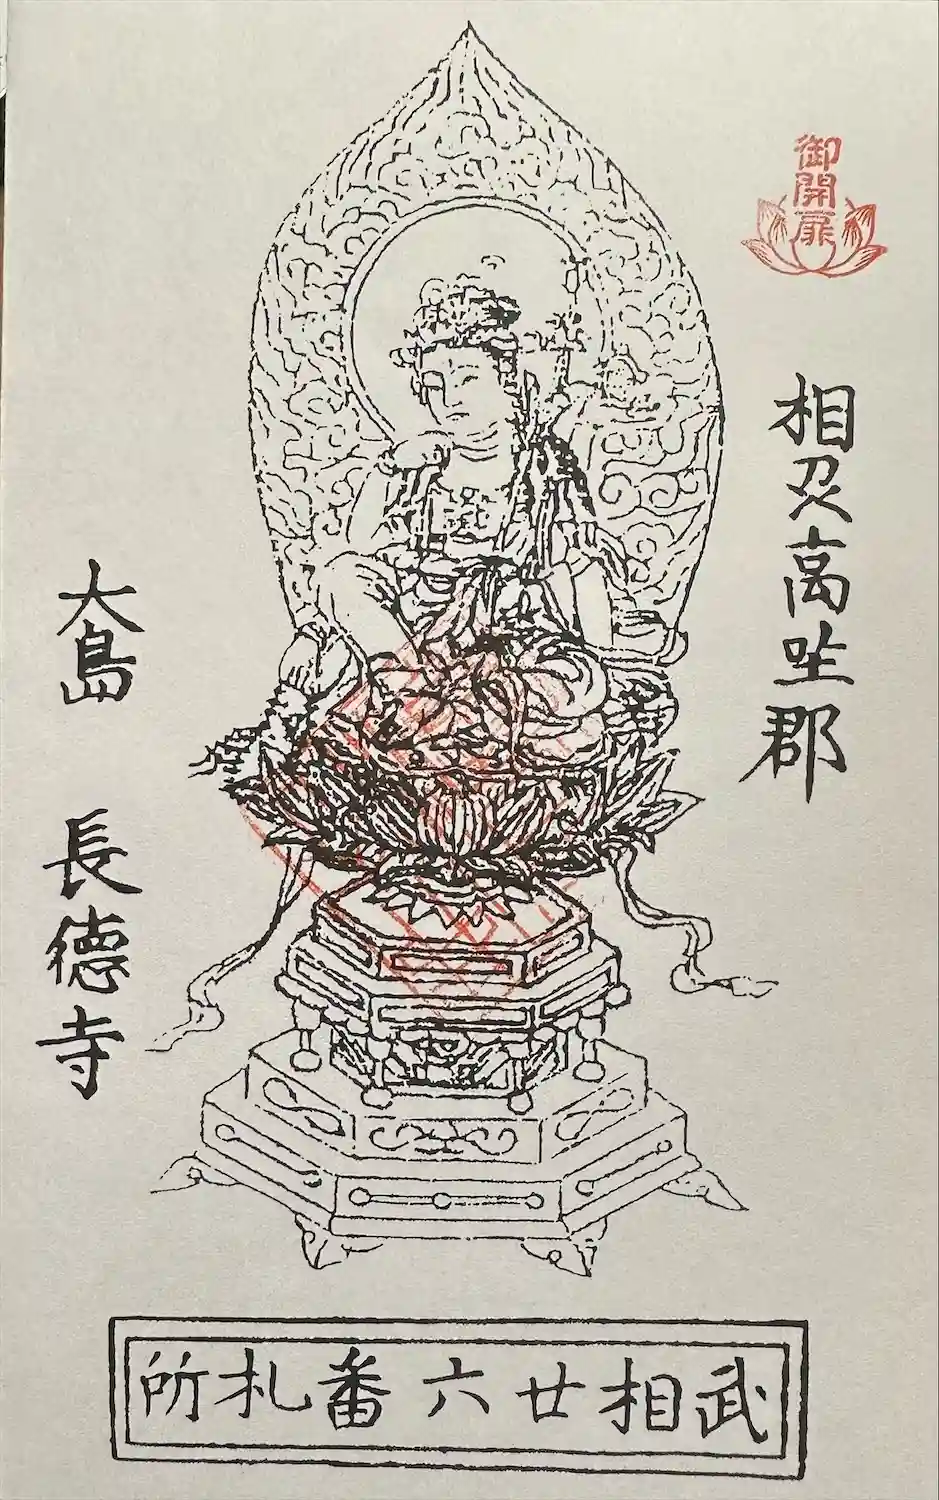 御開扉
相刕高坐郡
大島 長徳寺
武相廿六番札所